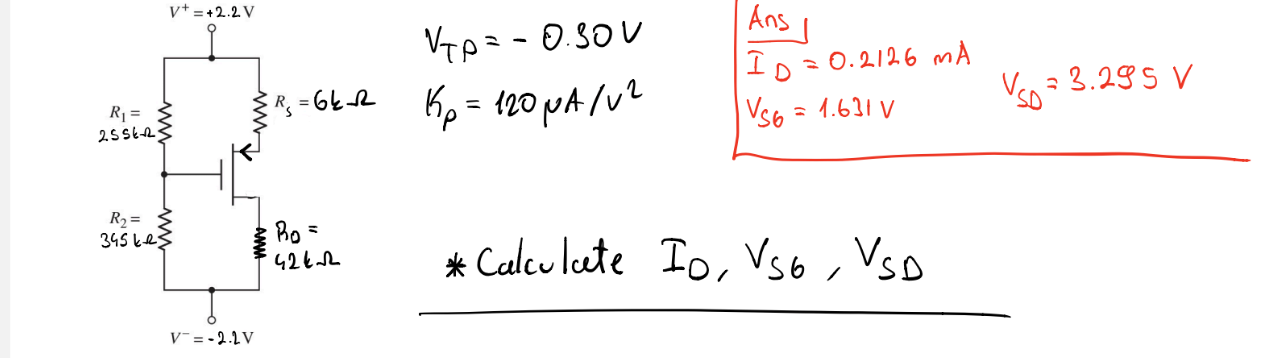 V⁺ = +2.2 V
R₁ =
255kΩ
R_S = 6kΩ
R₂ =
345kΩ
R_D =
42kΩ
V⁻ = -2.2 V
V_TP = - 0.30 V
K_p = 120 μA/V²
Ans
I_D = 0.2126 mA
V_SG = 1.631 V
V_SD = 3.295 V
* Calculate I_D, V_SG, V_SD